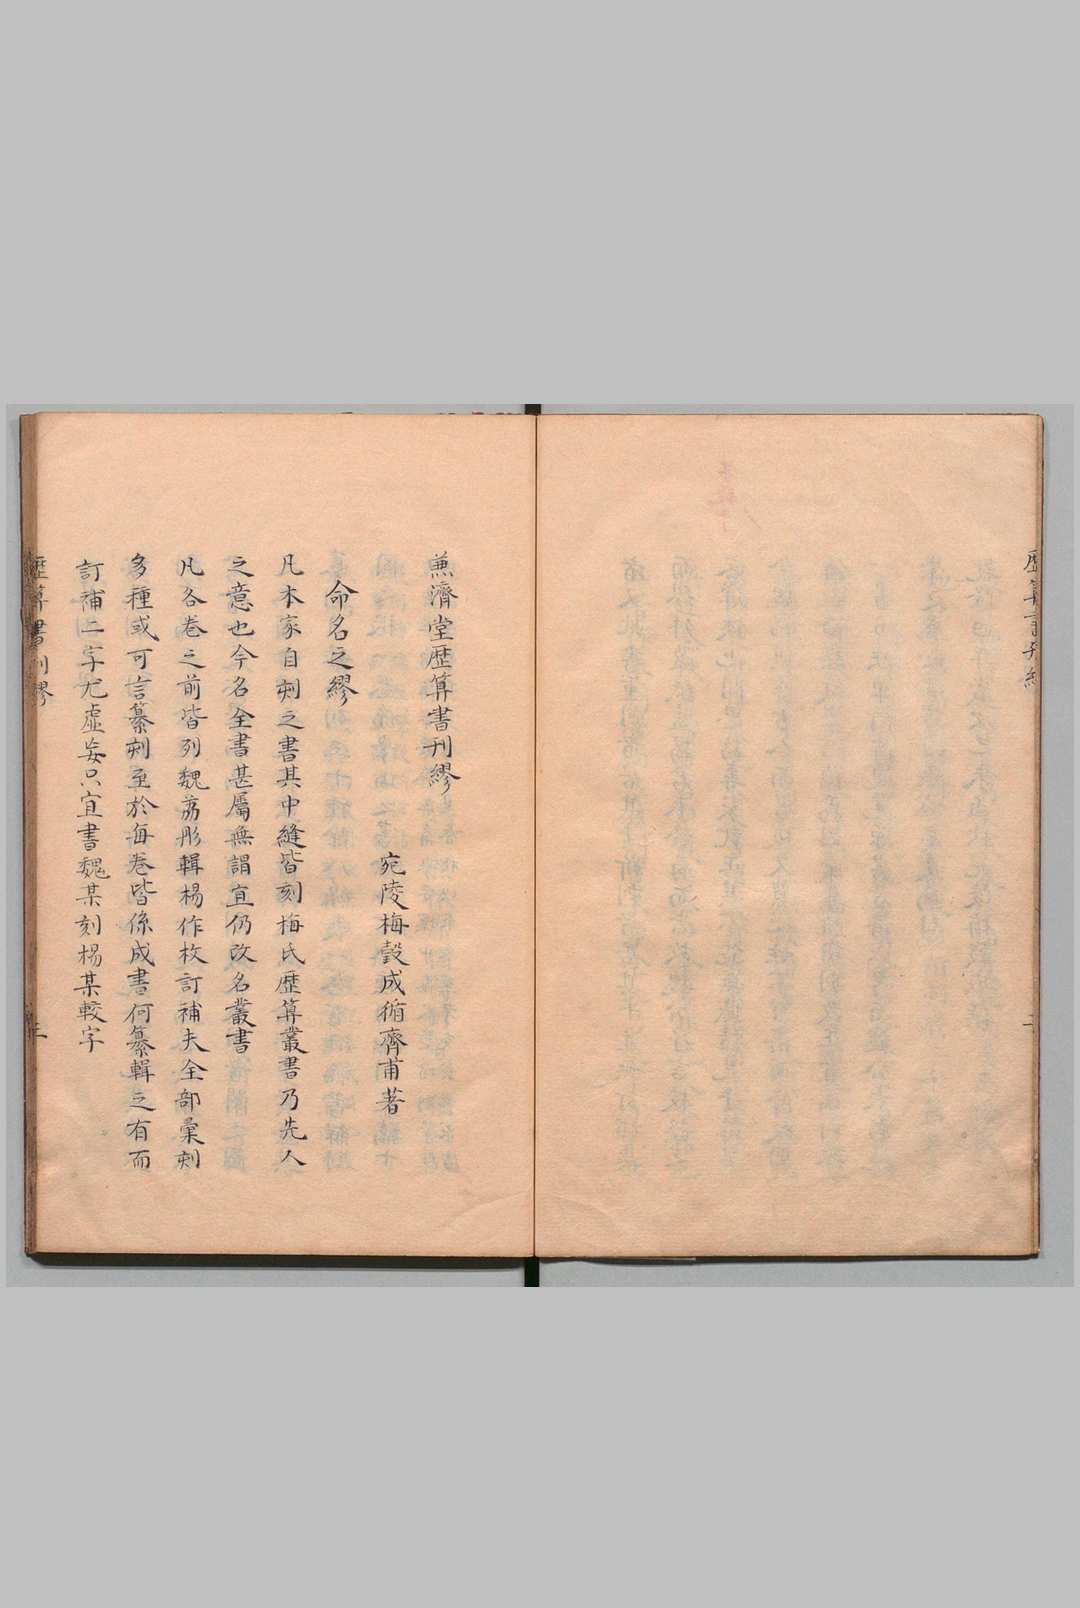 兼濟堂歷算書刊繆
宛陵梅瑴成循齊甫著
命名之繆
凡本家自刻之書其中縫皆刻梅氏歷算叢書乃先人
之意也今名全書甚屬無謂宜仍改名叢書
凡各卷之前皆列魏荔彤輯楊作枚訂補夫全部彙刻
多種或可言纂刻至於每卷皆係成書何纂輯之有而
訂補二字尤虛妄只宜書魏某刻楊某較字
歷算書刊繆